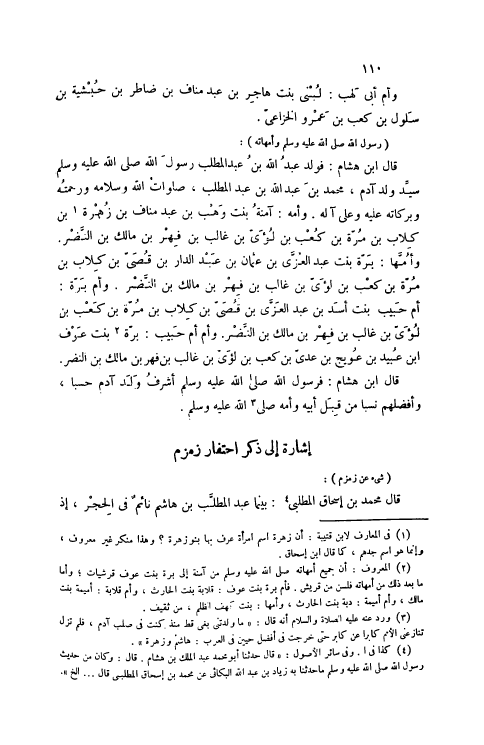 ١١٠
وأم أبى لهب : لُبْنَى بنت هاجِر بن عبد مناف بن ضاطر بن حُبْشية بن
سَلول بن كعب بن عَمْرو الخزاعىّ .
( رسول الله صلى الله عليه وسلم وأمهاته ) :
قال ابن هشام : فولد عبدُ الله بنُ عبدالمطلب رسولَ الله صلى الله عليه وسلم
سيِّد ولد آدم ، محمد بنَ عبدالله بن عبد المطلب ، صلوات الله وسلامه ورحمتُه
وبركاته عليه وعلى آله . وأمه : آمنةُ بنت وَهْب بن عبد مناف بن زُهْرة ١ بن
كلاب بن مُرّة بن كَعْب بن لُؤَىّ بن غالب بن فِهْر بن مالك بن النَّضْر.
وأمُّها : بَرّة بنت عبد العزَّى بن عثمان بن عَبْد الدار بن قُصَىّ بن كلاب بن
مُرّة بن كعب بن لؤىّ بن غالب بن فِهْر بن مالك بن النَّضْر . وأم بَرّة :
أم حَبيب بنت أسد بن عبد العزَّى بن قُصىّ بن كلاب بن مُرة بن كَعْب بن
لُؤىّ بن غالب بن فِهْر بن مالك بن النَّضْر. وأم أم حَبيب : برّة ٢ بنت عَوْف
ابن عُبيد بن عُوَيج بن عدىّ بن كعب بن لؤىّ بن غالب بن فهر بن مالك بن النضر.
قال ابن هشام : فرسول الله صلى الله عليه وسلم أشرفُ وَلَد آدم حسبا ،
وأفضلهم نسبا من قِبَل أبيه وأمه صلى ٣ الله عليه وسلم .
إشارة إلى ذكر احتفار زمزم
( شىء عن زمزم ) :
قال محمد بن إسحاق المطلبى ٤ : بينما عبد المطَّلب بن هاشم نائمٌ فى الحِجْر ، إذ
(١) فى المعارف لابن قتيبة : أن زهرة اسم امرأة عرف بها بنو زهرة ؟ وهذا منكر غير معروف ،
وإنما هو اسم جدهم ، كما قال ابن إسحاق .
(٢) المعروف : أن جميع أمهاته صلى الله عليه وسلم من آمنة إلى برة بنت عوف قرشيات ؛ وأما
ما بعد ذلك من أمهاته فلسن من قريش . فأم برة بنت عوف : قلابة بنت الحارث ، وأم قلابة : أميمة بنت
مالك ، وأم أميمة : دبة بنت الحارث ، وأمها : بنت كهف الظلم ، من ثقيف .
(٣) ورد عنه عليه الصلاة والسلام أنه قال : « ما ولدتنى بغى قط منذ كنت فى صلب آدم ، فلم تزل
تنازعنى الأمم كابرا عن كابر حتى خرجت فى أفضل حيين فى العرب : هاشم وزهرة » .
(٤) كذا فى ا . وفى سائر الأصول : « قال حدثنا أبو محمد عبد الملك بن هشام . قال : وكان من حديث
رسول الله صلى الله عليه وسلم ما حدثنا به زياد بن عبد الله البكائى عن محمد بن إسحاق المطلبى قال ... الخ ».